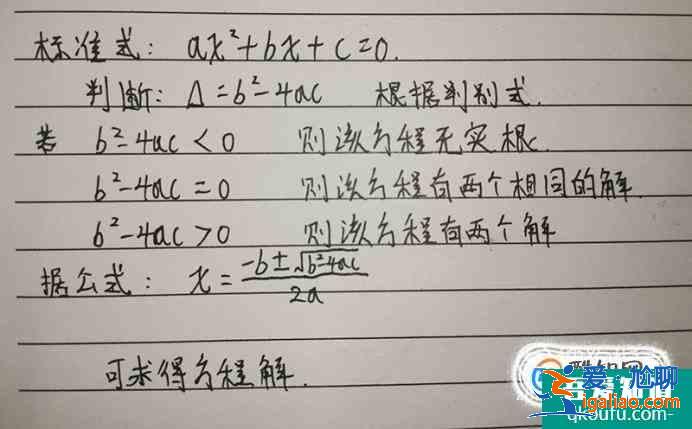 标准式： ax²+bx+c=0.
判断： Δ=b²-4ac 根据判别式.
若 b²-4ac<0 则该方程无实根.
b²-4ac=0 则该方程有两个相同的解.
b²-4ac>0 则该方程有两个解
据公式： x=\frac{-b±\sqrt{b²-4ac}}{2a}
可求得方程解.
爱·尬聊
igaliao.com
qk5ufu.com-